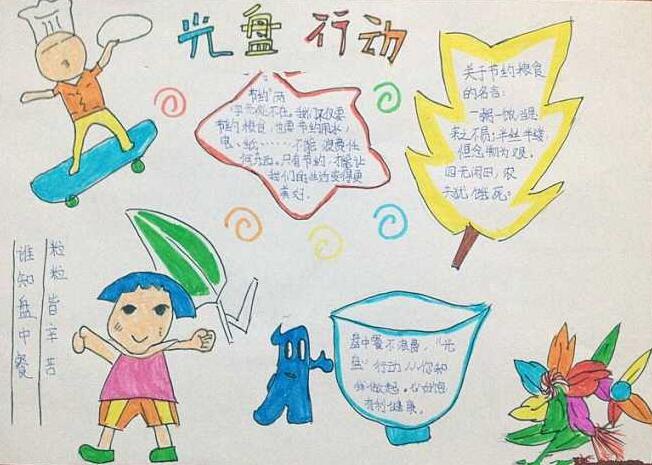 光盘行动
节约"两
字无处不在。我们不仅要
节约粮食，也要节约用水，
电、纸………不能浪费任
何东西。只有节约，才能让
我们的生活变得更
美好。
关于节约粮食
的名言：
一粥一饭，当思
来之不易；半丝半缕，
恒念物力为艰。
四无闲田，农
夫犹饿死。
谁知盘中餐
粒粒皆辛苦
盘中餐不浪费，"光
盘"行动从你和
我做起。
有利健康。